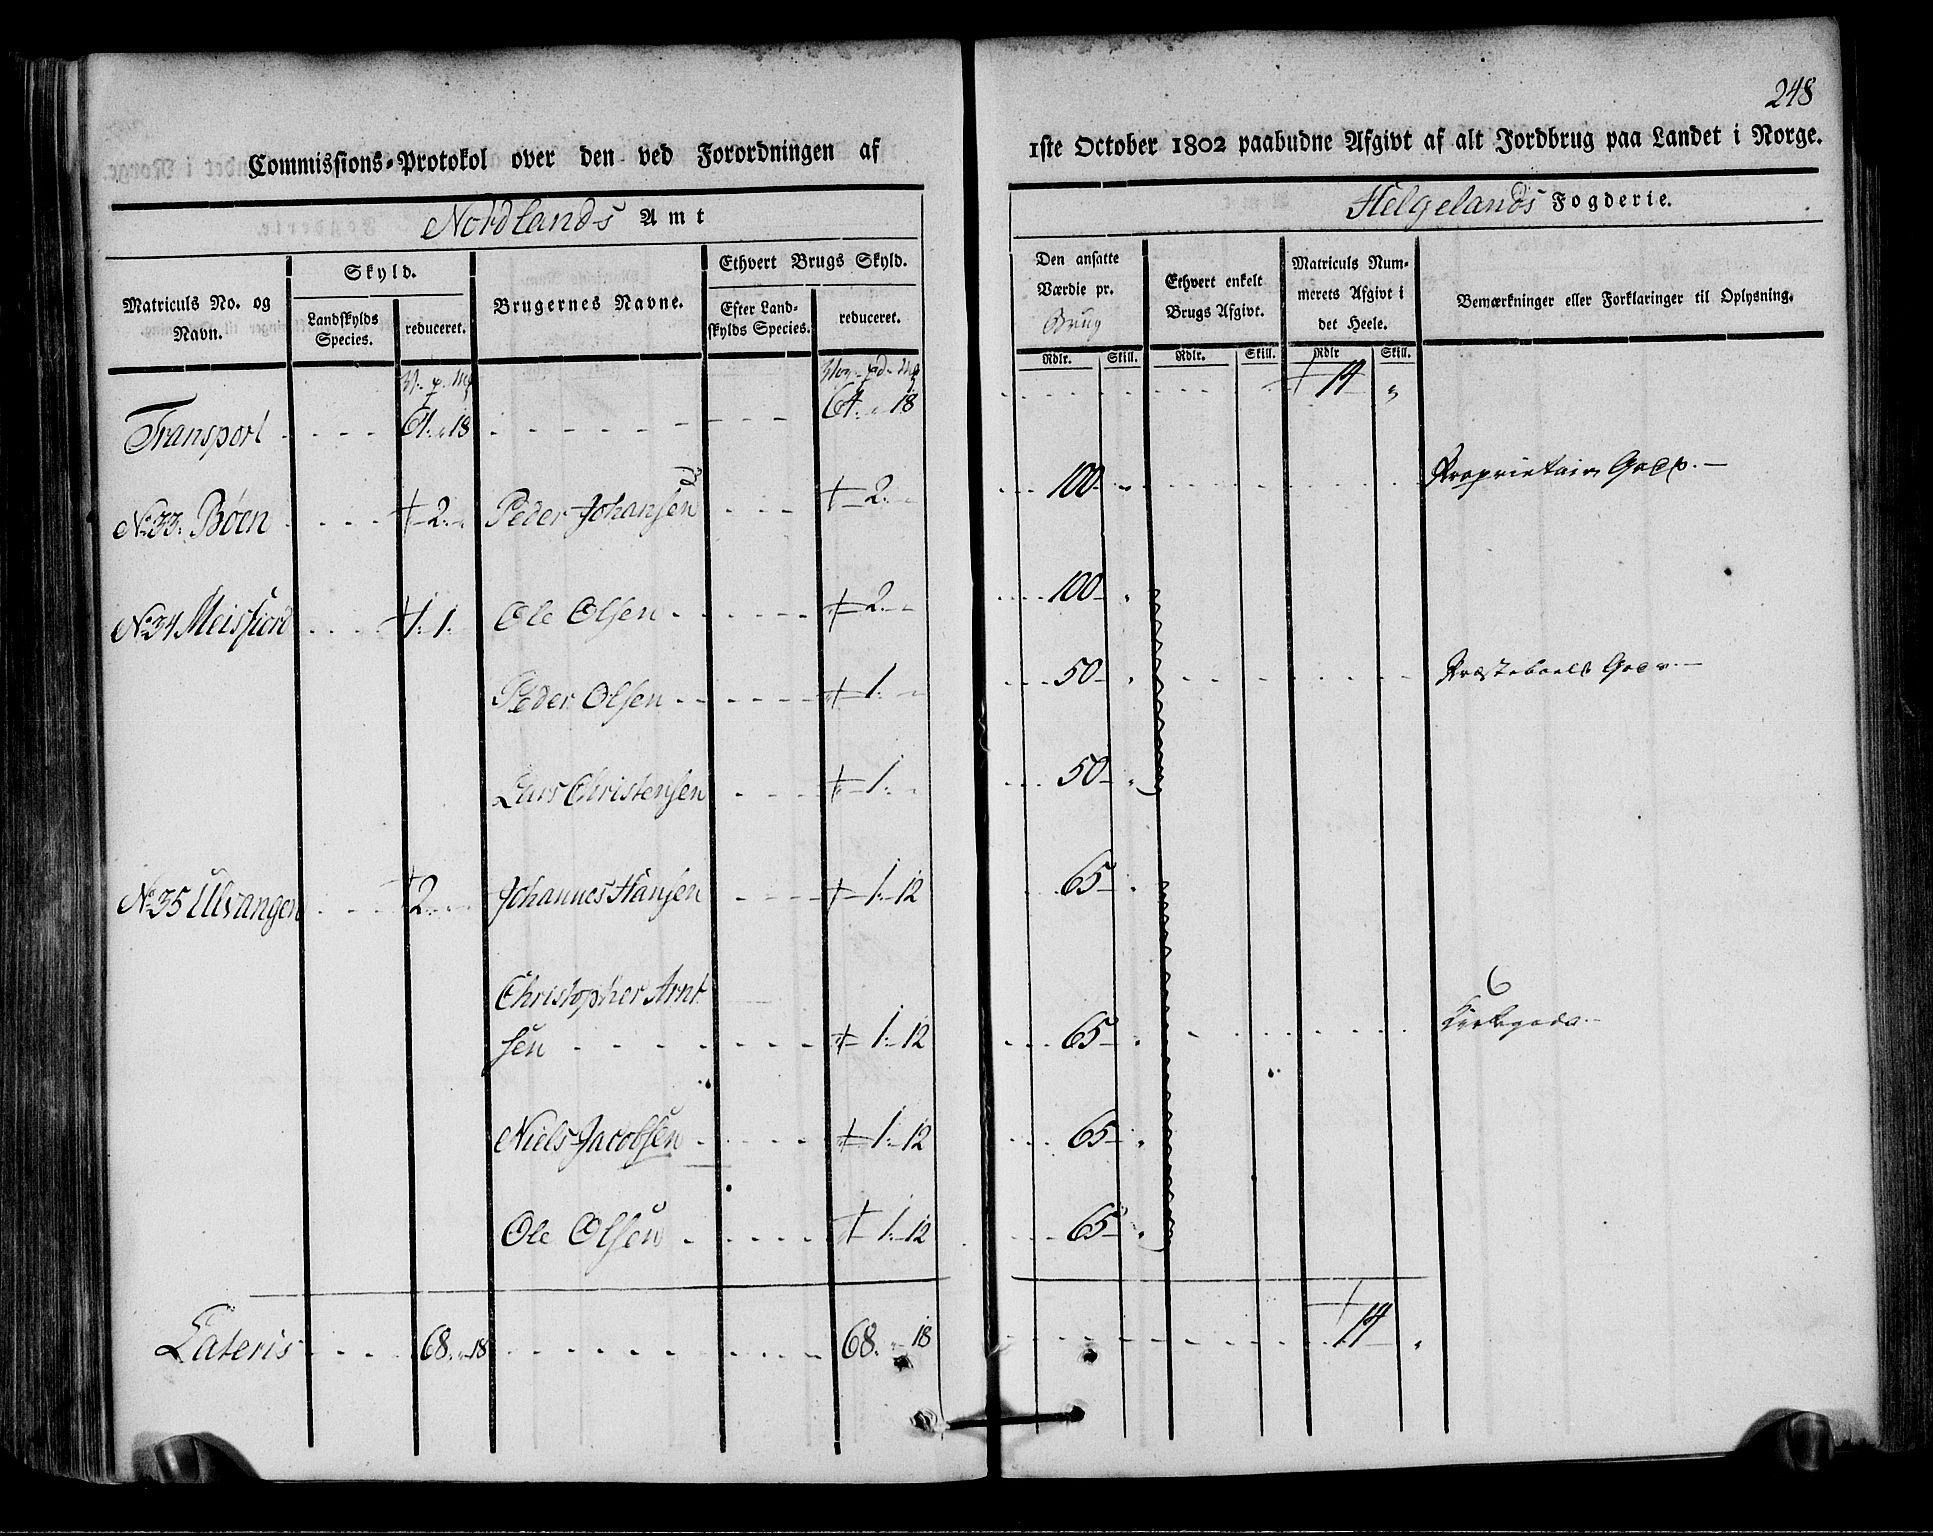 248
Commissions-Protokol over den ved Forordningen af
1ste October 1802 paabudne Afgivt af alt Jordbrug paa Landet i Norge.
Nordlands Amt
Helgelands Fogderie.
Matriculs No. og Navn.
Skyld.
Landskylds Species.
reduceret.
Brugernes Navne.
Ethvert Brugs Skyld.
Efter Landskylds Species.
reduceret.
Den ansatte Værdie pr. Brug
Ethvert enkelt Brugs Afgivt.
Matriculs Nummerets Afgivt i det Heele.
Bemærkninger eller Forklaringer til Oplysning.
Rdlr. Skill. Rdlr. Skill. Rdlr Skill.
Transport 64. 18 64. 18 14
No 33. Böen 2. Peder Johansen 2. 100 Proprietair Gods.
No 34 Meisfiord 1. 1. Ole Olsen 2. 100
Peder Olsen 1. 50 Præsteboels Gods.
Lars Christensen 1. 50
No 35 Ulvangen 2. Johannes Hansen 1. 12 65
Christopher Arnt
sen 1. 12 65 Kirkegods.
Niels Jacobsen 1. 12 65
Ole Olsen 1. 12 65
Lateris 68. 18 68. 18 14